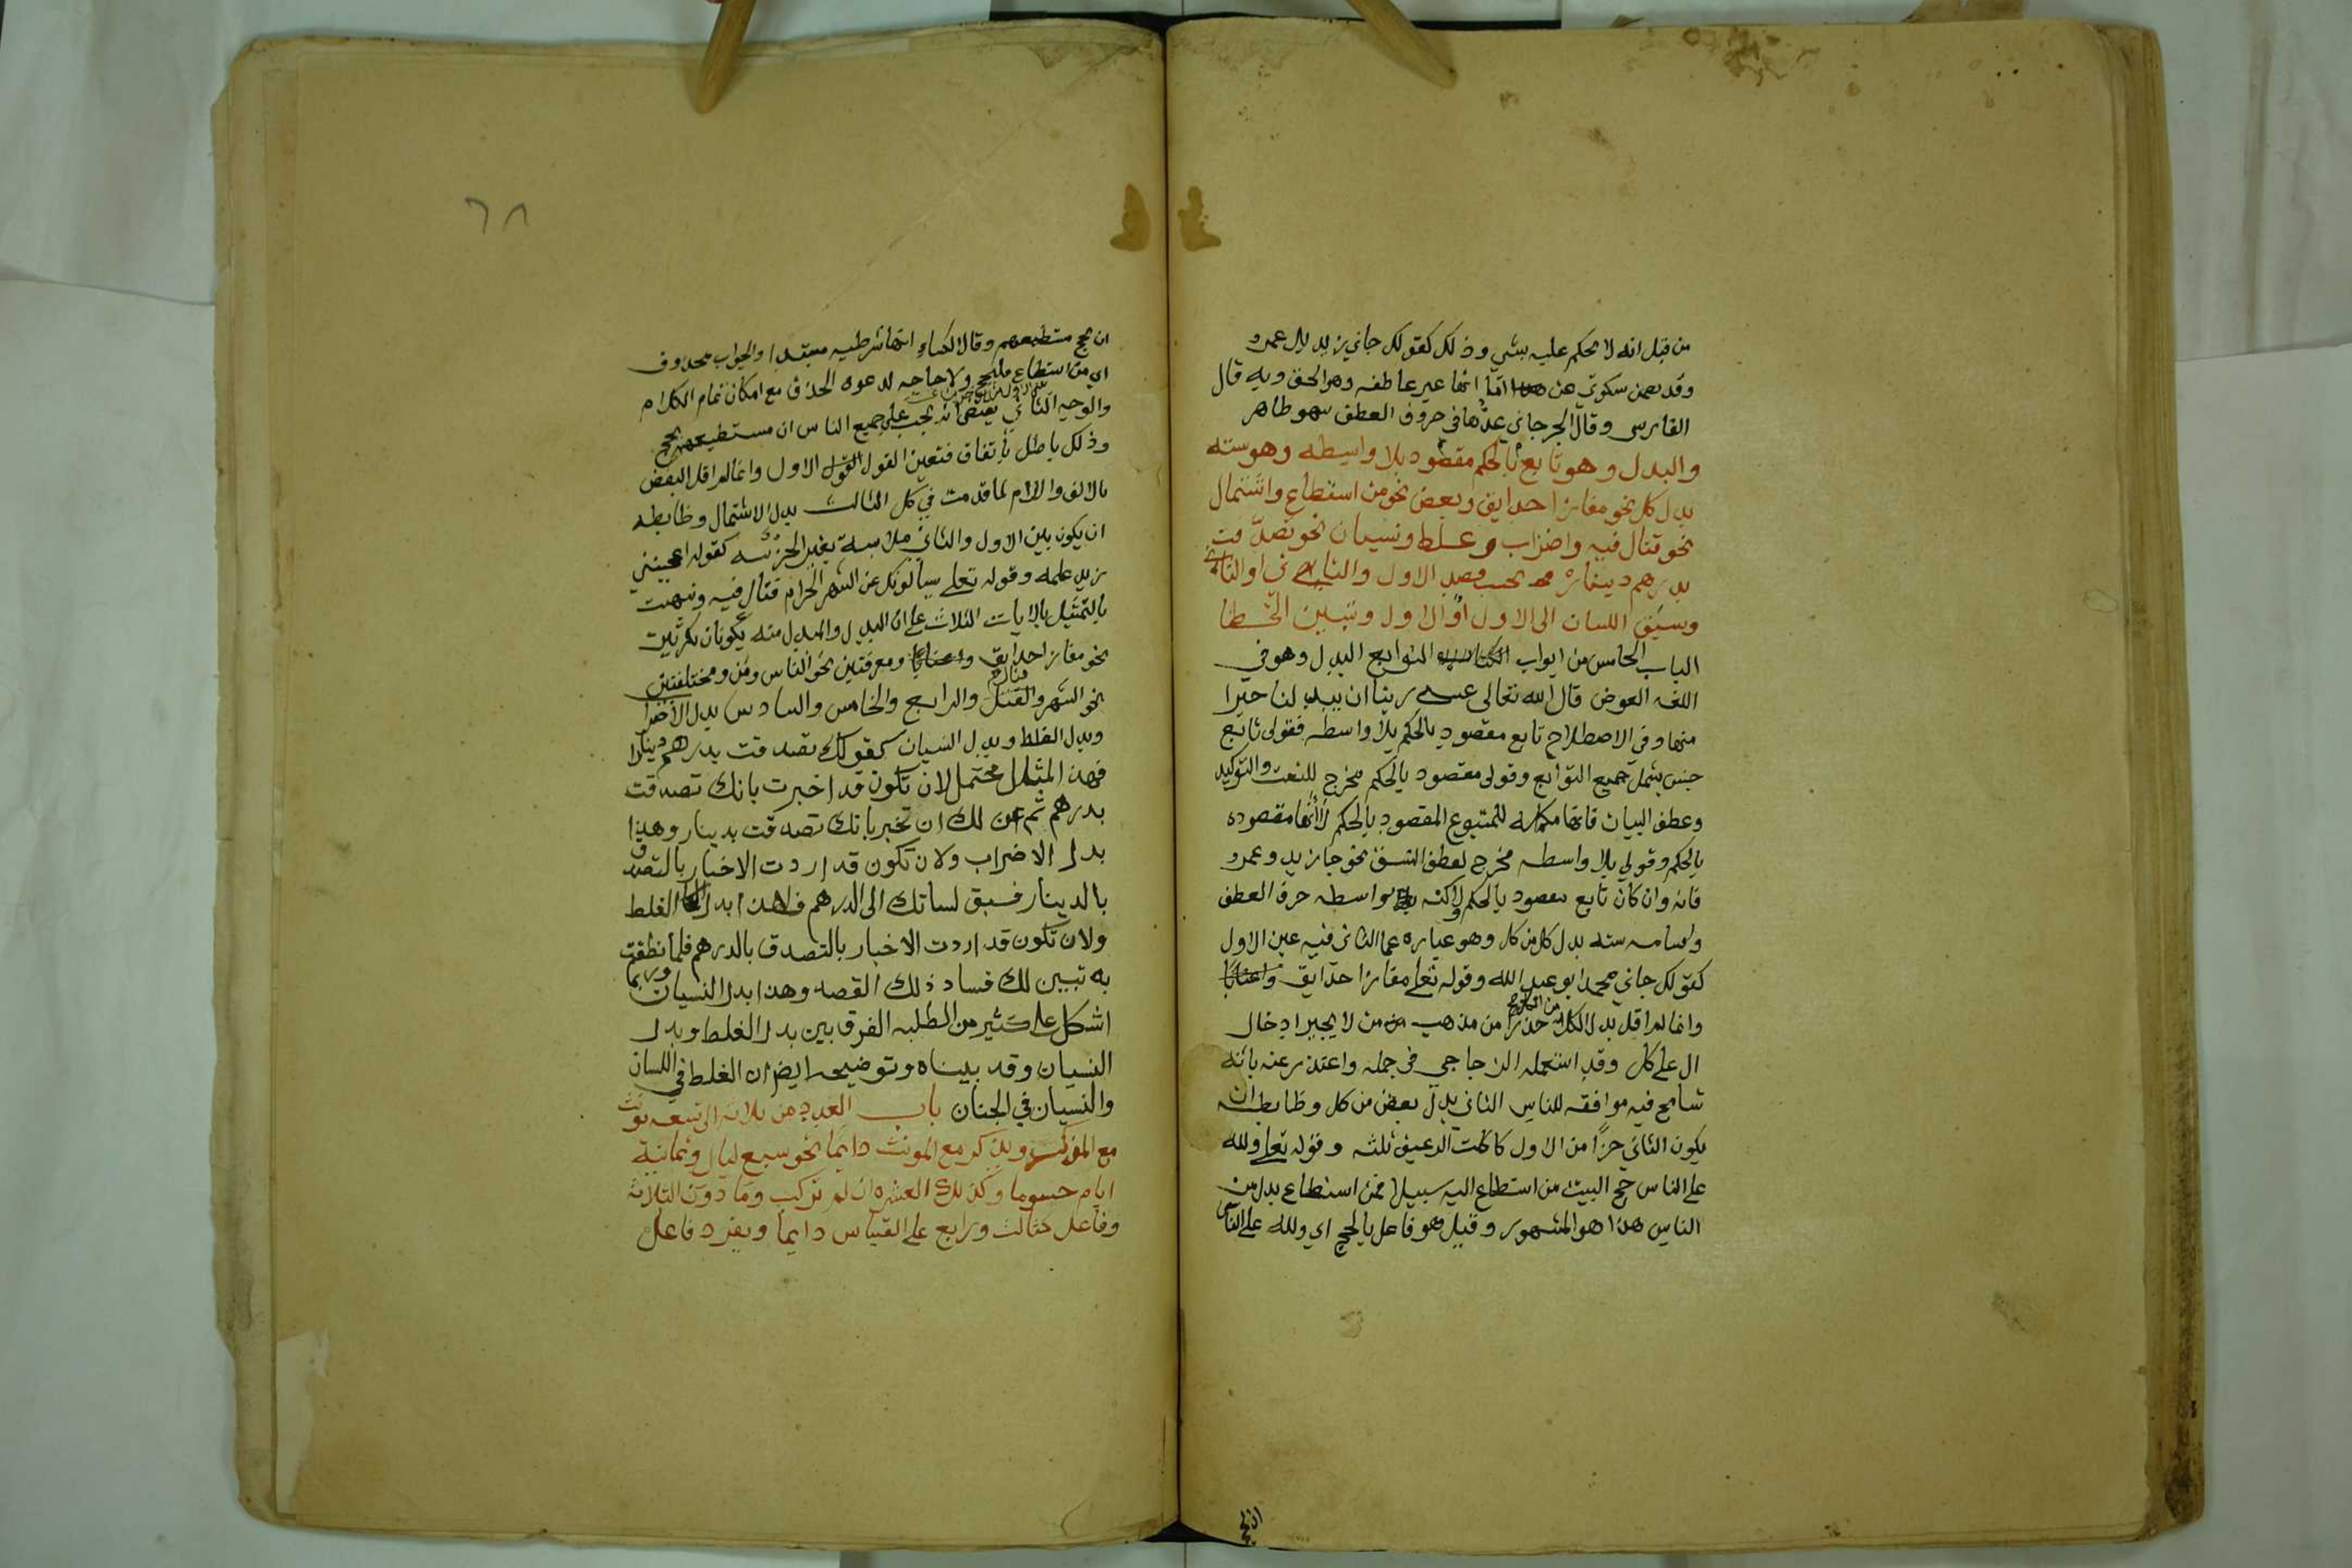 من قبل انه لا يحكم عليه بشي وذلك كقولك جاني زيد بل عمرو
وقد تضمن سكوتي عن اما انها غير عاطفه وهو الحق وبه قال
الفارسي وقال الجرجاني عدها في حروف العطف سهو ظاهر
والبدل وهو تابع بالحكم مقصود بلا واسطه وهو سته
بدل كل نحو مفازا حدايق وبعض نحو من استطاع واشتمال
نحو قتال فيه واضراب وغلط ونسيان نحو تصدقت
بدرهم دينار بحسب قصد الاول والثاني او الثاني
وسبق اللسان الى الاول او الاول وتبين الخطا
الباب الخامس من ابواب التوابع البدل وهو في
اللغه العوض قال الله تعالى عسى ربنا ان يبدلنا خيرا
منها وفي الاصطلاح تابع مقصود بالحكم بلا واسطه فقولى تابع
جنس يشمل جميع التوابع وقولى مقصود بالحكم مخرج للنعت والتوكيد
وعطف البيان فانها مكمله للمتبوع المقصود بالحكم لا انها مقصوده
بالحكم وقولي بلا واسطه مخرج لعطف النسق نحو جا زيد وعمرو
فانه وان كان تابع مقصود بالحكم ولاكنه بواسطه حرف العطف
واقسامه سته بدل كل من كل وهو عباره عما الثاني فيه عين الاول
كقولك جاني محمد ابو عبد الله وقوله تعلى مفازا حدايق واعنابا
وانما لم اقل بدل الكل من الكل حذرا من مذهب من لا يجيز ادخال
ال على كل وقد استعمله الزجاجي في جمله واعتذر عنه بانه
تسامح فيه موافقه للناس الثاني بدل بعض من كل وضابطه ان
يكون الثاني جزا من الاول كاكلت الرغيف ثلثه وقوله تعلى ولله
على الناس حج البيت من استطاع اليه سبيلا فمن استطاع بدل من
الناس هذا هو المشهور وقيل هو فاعل بالحج اي ولله على الناس
ان يحج
٦٨
ان يحج مستطيعهم وقال الكساي انها شرطيه مبتدا والجواب محذوف
اي من استطاع فليحج ولا حاجه لدعوه الحذف مع امكان تمام الكلام
والوجه الثاني يقتضي انه يجب على جميع الناس ان مستطيعهم يحج
وذلك باطل باتفاق فتعين القول الاول وانما لم اقل البعض
بالالف واللام لما قدمت في كل الثالث بدل الاشتمال وضابطه
ان يكون بين الاول والثاني ملابسة بغير الجزئيه كقوله اعجبني
زيد علمه وقوله تعلى يسالونك عن الشهر الحرام قتال فيه ونبهت
بالتمثيل بالايات الثلاث على ان البدل والمبدل منه يكونان نكرتين
نحو مفازا حدايق واعنابا ومعرفتين نحو الناس ومن ومختلفتين
نحو الشهر وقتال والرابع والخامس والسادس بدل الاضراب
وبدل الغلط وبدل النسيان كقولك تصدقت بدرهم دينار
فهذا المثل محتمل لان تكون قد اخبرت بانك تصدقت
بدرهم ثم عن لك ان تخبر بانك تصدقت بدينار وهذا
بدل الاضراب ولان تكون قد اردت الاخبار بالتصدق
بالدينار فسبق لسانك الى الدرهم فهذا بدل الغلط
ولان تكون قد اردت الاخبار بالتصدق بالدرهم فلما نطقت
به تبين لك فساد ذلك القصه وهذا بدل النسيان وربما
اشكل على كثير من الطلبه الفرق بين بدل الغلط وبدل
النسيان وقد بيناه وتوضيحه ايضا ان الغلط في اللسان
والنسيان في الجنان باب العدد من ثلاثه الى تسعه تونث
مع المذكر ويذكر مع المونث دايما نحو سبع ليال وثمانية
ايام حسوما وكذلك العشره ان لم تركب وما دون الثلاثة
وفاعل كثالث ورابع على القياس دايما ويفرد فاعل